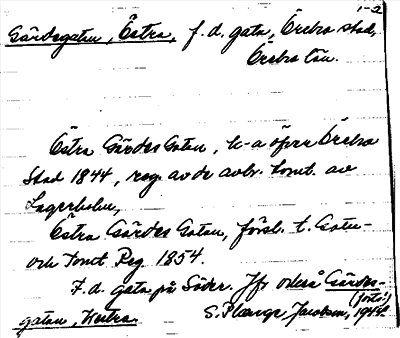 1-2
Gärdsgatan, Östra, f. d. gata, Örebro stad,
Örebro län.
Östra Gärdes Gatan, k-a öfver Örebro
Stad 1844, reg. av de avbr. tomt. av
Lagerholm,
Östra Gärdes Gatan, försl. t. Gatu-
och Tomt Reg. 1854.
F. d. gata på Söder. Jfr också Gärdes-
(forts.)
gatan, Västra. S. Plænge Jacobson, 1944.